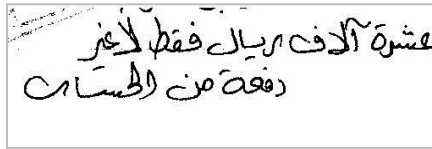 عشرة آلاف ريال فقط لا غير
دفعة من الحساب